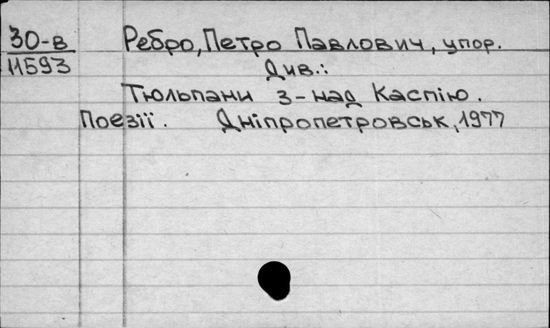 30-в Ребро, Петро Павлович, упор.
11593 Див.:
Тюльпани з-над Каспію.
Поезії. Дніпропетровськ, 1977